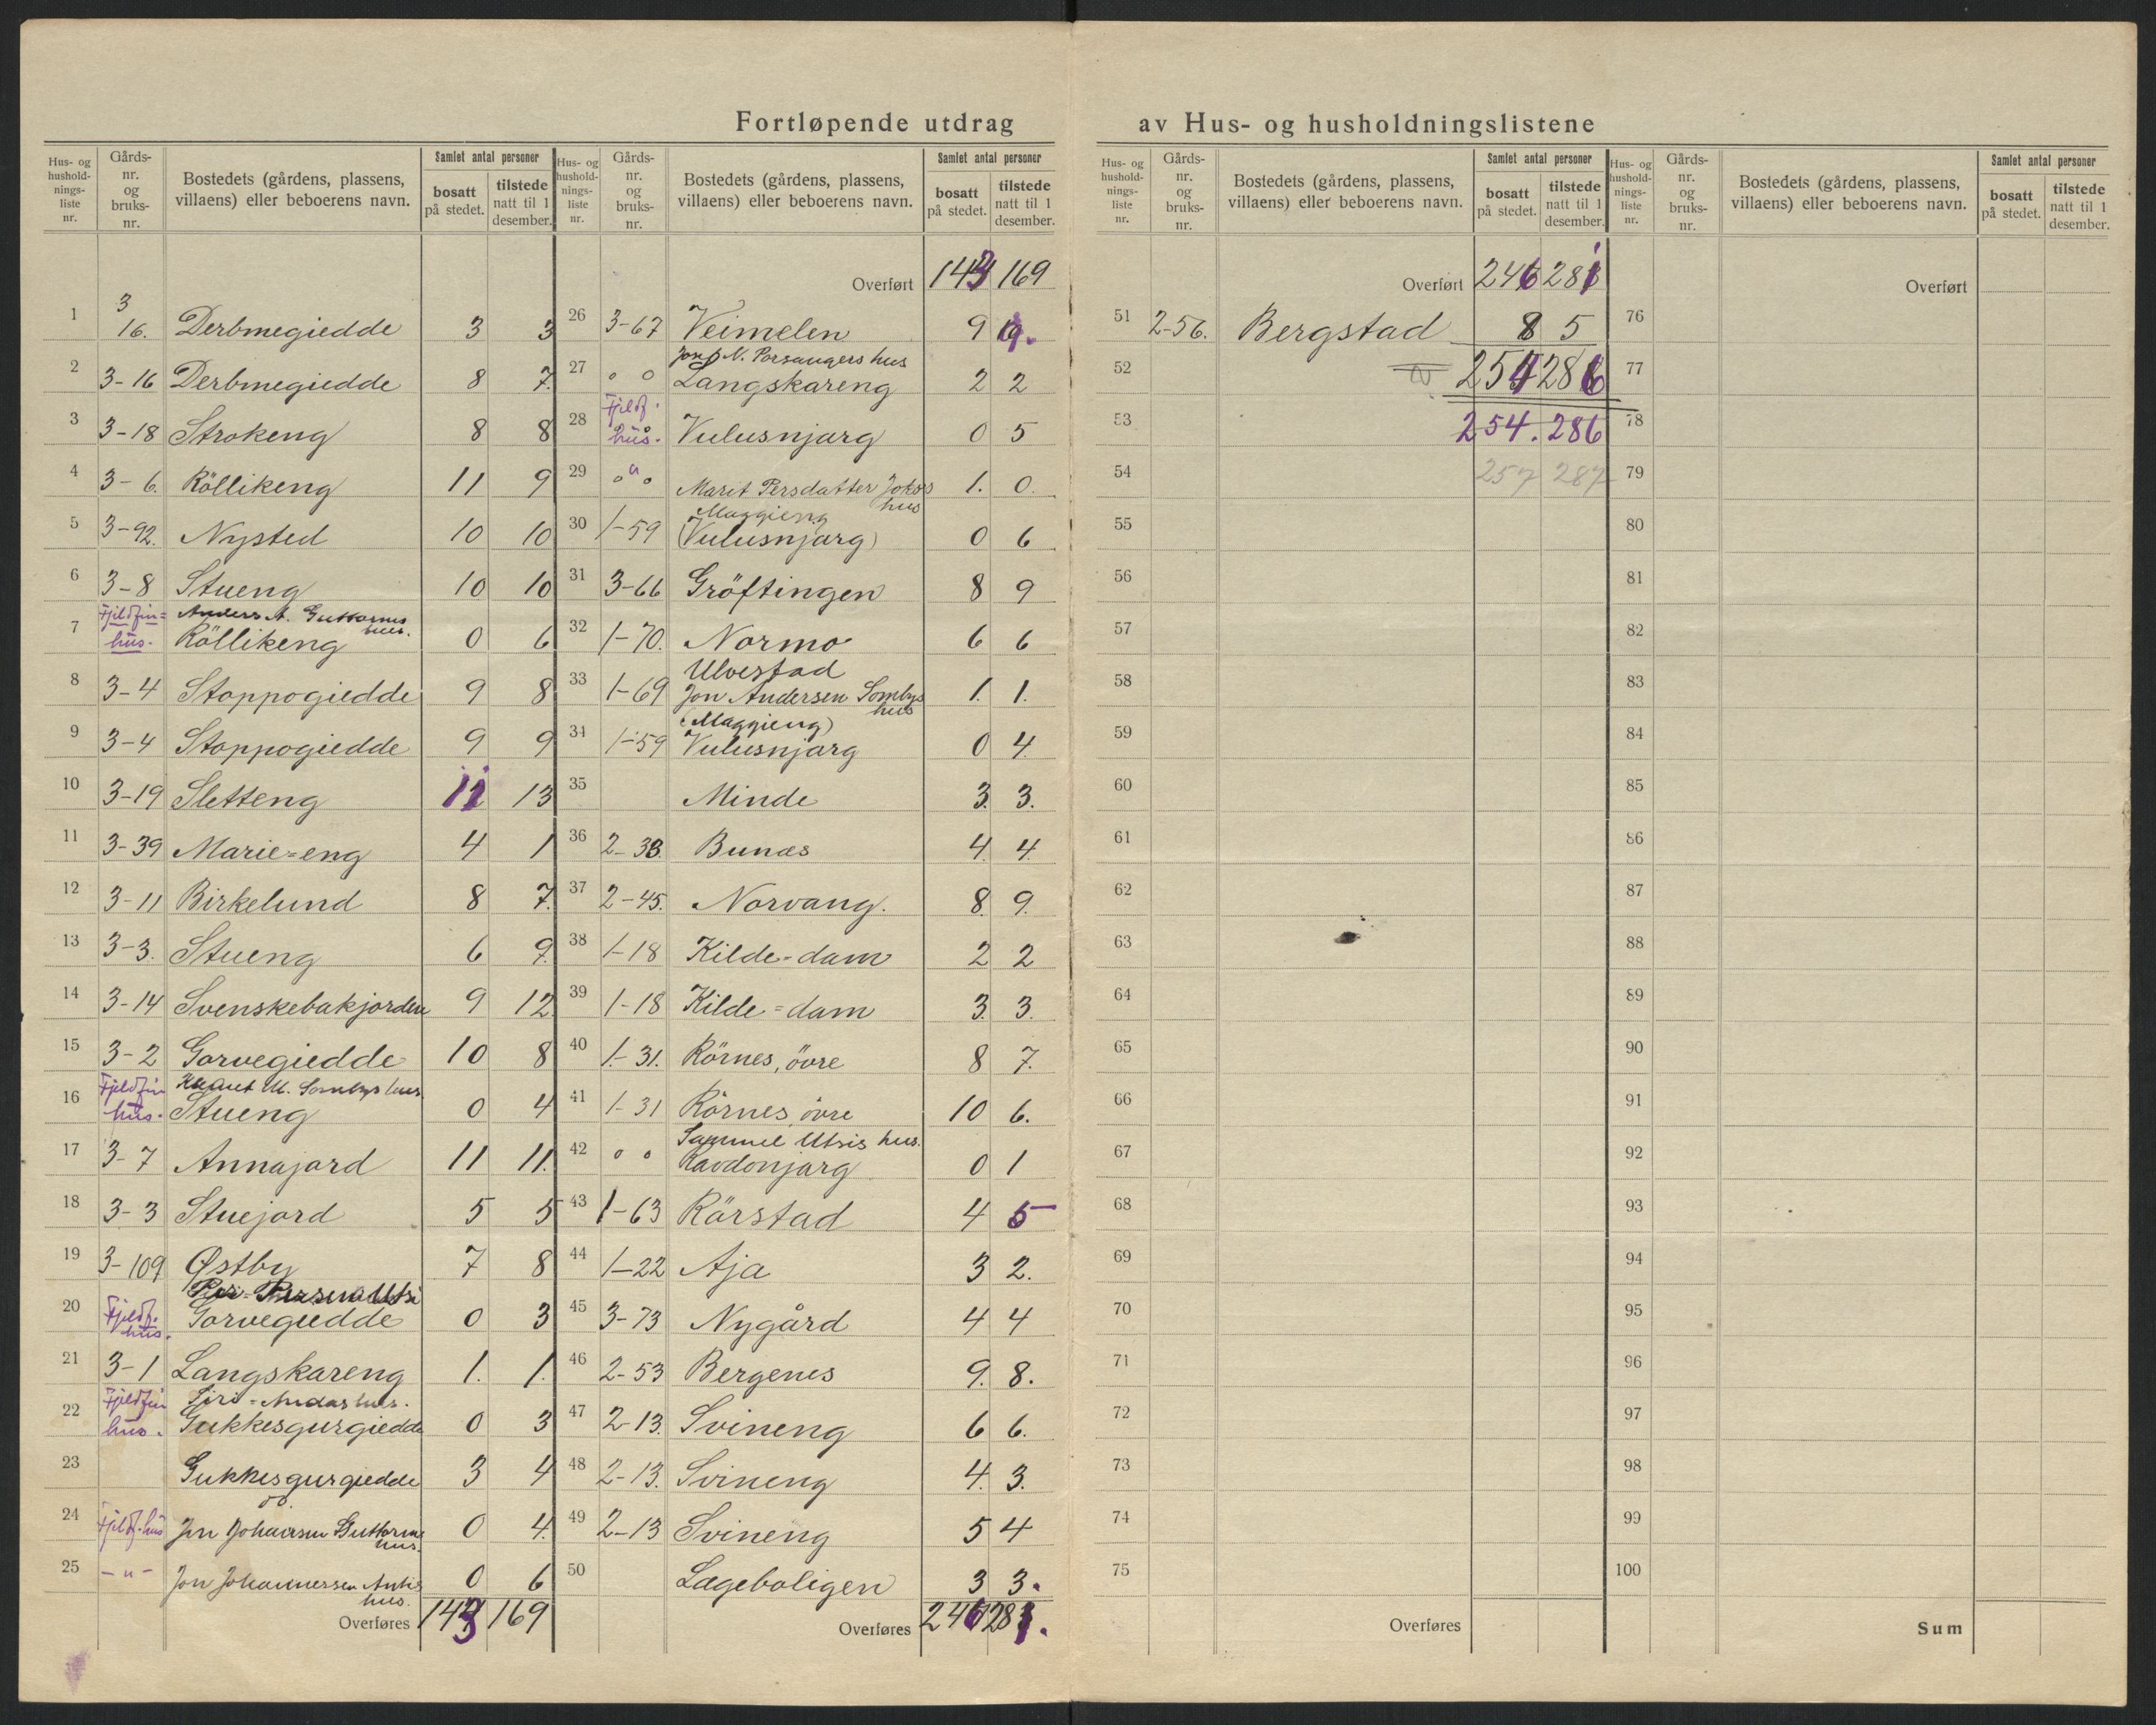 Fortløpende utdrag av Hus- og husholdningslistene
Hus- og husholdningsliste nr. | Gårds-nr. og bruks-nr. | Bostedets (gårdens, plassens, villaens) eller beboerens navn. | Samlet antal personer | bosatt på stedet. | tilstede natt til 1 desember.
1 3 16. Derbmegiedde 3 3
2 3-16 Derbmegiedde 8 7.
3 3-18 Strokeng 8 8
4 3-6. Röllikeng 11 9
5 3-92. Nysted 10 10
6 3-8 Stueng 10 10
7 Fjeldfin= hus. Anders A. Guttorms hus. Röllikeng 0 6
8 3-4 Stoppogiedde 9 8
9 3-4 Stoppogiedde 9 9
10 3-19 Sletteng 11 13
11 3-39 Marie=eng 4 1
12 3-11 Birkelund 8 7.
13 3-3. Stueng 6 9.
14 3-14 Svenskebakjorden 9 12
15 3-2 Gorvegiedde 10 8
16 Fjeldfin hus. M. Sombys hus Stueng 0 4
17 3-7 Annajord 11 11.
18 3-3 Stuejord 5 5
19 3-109 Østby 7 8
20 Fjeldf. hus. Utsi Gorvegiedde 0 3
21 3-1 Langskareng 1. 1.
22 Fjeldfin hus. hus. Gukkesgurgiedde 0 3
23 Gukkesgurgiedde 3 4
24 Fjeldf. hus Jon Johansen Guttorms hus. 0 4.
25 -"- Jon Johannessen Antis hus. 0 6
Overføres 143 169
Hus- og husholdningsliste nr. | Gårds-nr. og bruks-nr. | Bostedets (gårdens, plassens, villaens) eller beboerens navn. | Samlet antal personer | bosatt på stedet. | tilstede natt til 1 desember.
Overført 143 169
26 3-67 Veimelen 9 9.
27 o o Josef N. Porsangers hus Langskareng 2 2
28 Fjeldf. hus. Vulusnjarg 0 5
29 o " o Maret Persdatter Jokos hus 1. 0.
30 1-59 Maggieng (Vulusnjarg) 0 6
31 3-66 Gröftingen 8 9
32 1-70. Normo 6 6
33 1-69 Ulvestad Jon Andersen Sombys hus 1. 1.
34 1-59 (Maggieng) Vulusnjarg 0 4.
35 Minde 3. 3.
36 2-38. Bunæs 4. 4.
37 2-45. Norvang. 8. 9.
38 1-18 Kilde-dam 2 2
39 1-18 Kilde=dam 3. 3.
40 1-31. Rörnes, övre 8 7.
41 1-31 Rörnes, övre 10 6.
42 o o Sammel Utsis hus. Ravdonjarg 0 1
43 1-63 Rörstad 4 5
44 1-22 Aja 3 2.
45 3-73 Nygård 4 4
46 2-53 Bergenes 9. 8.
47 2-13. Svineng 6 6.
48 2-13. Svineng 4. 3.
49 2-13 Svineng 5 4
50 Lægeboligen 3 3.
Overføres 246 281.
Hus- og husholdningsliste nr. | Gårds-nr. og bruks-nr. | Bostedets (gårdens, plassens, villaens) eller beboerens navn. | Samlet antal personer | bosatt på stedet. | tilstede natt til 1 desember.
Overført 246 281
51 2-56. Bergstad 8 5
52 254 286
53 254. 286
54 257 287
55
56
57
58
59
60
61
62
63
64
65
66
67
68
69
70
71
72
73
74
75
Overføres
Hus- og husholdningsliste nr. | Gårds-nr. og bruks-nr. | Bostedets (gårdens, plassens, villaens) eller beboerens navn. | Samlet antal personer | bosatt på stedet. | tilstede natt til 1 desember.
Overført
76
77
78
79
80
81
82
83
84
85
86
87
88
89
90
91
92
93
94
95
96
97
98
99
100
Sum